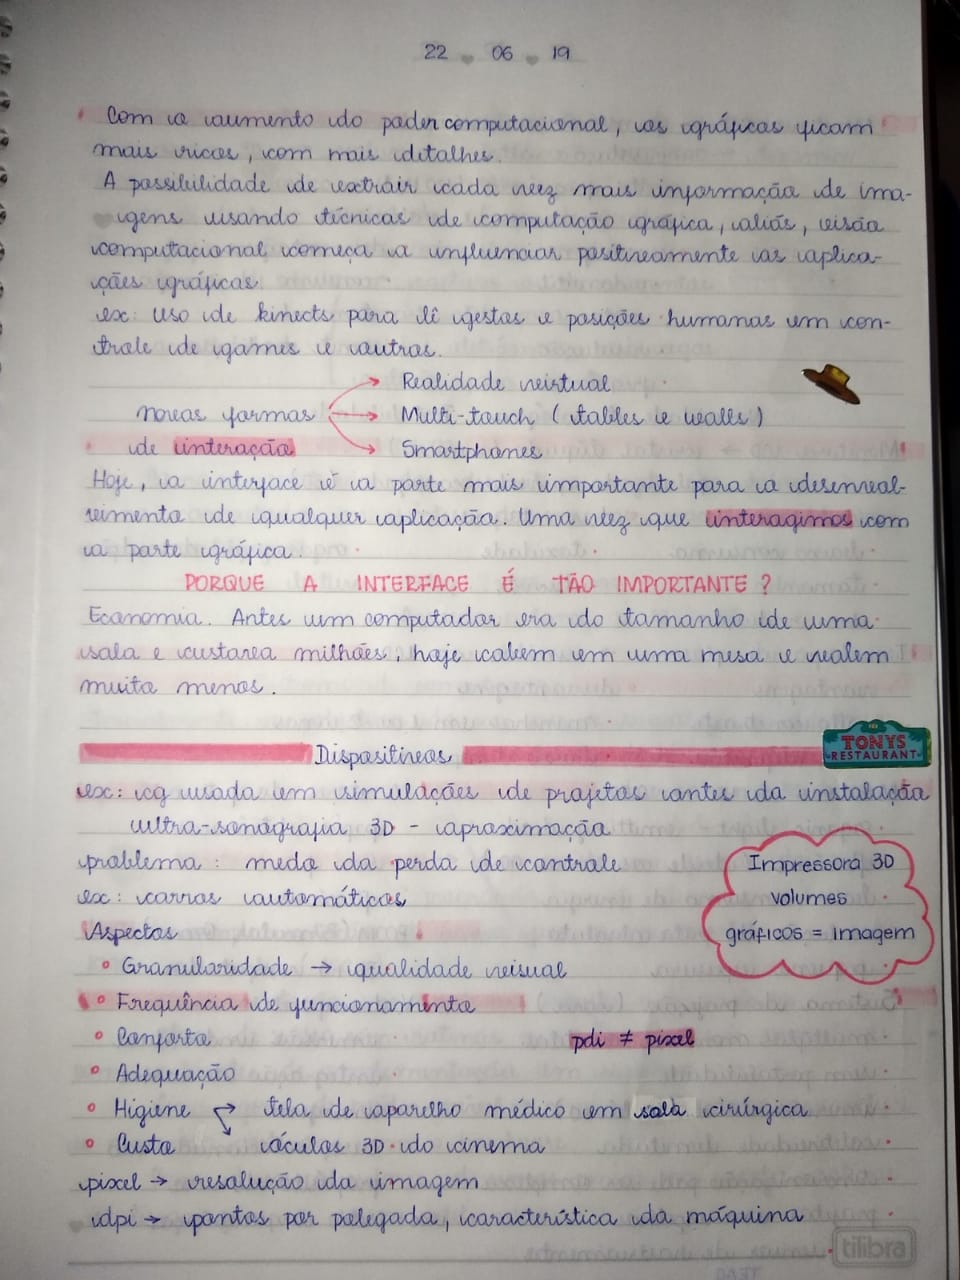 22 06 19
Com o aumento do poder computacional, os gráficos ficam
mais ricos, com mais detalhes.
A possibilidade de extrair cada vez mais informação de ima-
gens usando técnicas de computação gráfica, aliás, visão
computacional começa a influenciar positivamente as aplica-
ções gráficas.
ex: Uso de kinects para lê gestos e posições humanas em con-
trole de games e outros.
Realidade virtual
novas formas → Multi-touch (tables e walls)
de interação Smartphones
Hoje, a interface é a parte mais importante para o desenvol-
vimento de qualquer aplicação. Uma vez que interagimos com
a parte gráfica.
PORQUE A INTERFACE É TÃO IMPORTANTE?
Economia. Antes um computador era do tamanho de uma
sala e custava milhões, hoje cabem em uma mesa e valem
muito menos.
Dispositivos
TONYS
RESTAURANT
ex: cg usada em simulações de projetos antes da instalação
ultra-sonografia 3D - aproximação
problema: medo da perda de controle
ex: carros automáticos
Impressora 3D
volumes
gráficos = imagem
Aspectos
° Granularidade → qualidade visual
° Frequência de funcionamento
° Conforto
pdi ≠ pixel
° Adequação
° Higiene → tela de aparelho médico em sala cirúrgica
° Custo óculos 3D do cinema
pixel → resolução da imagem
dpi → pontos por polegada, característica da máquina
tilibra